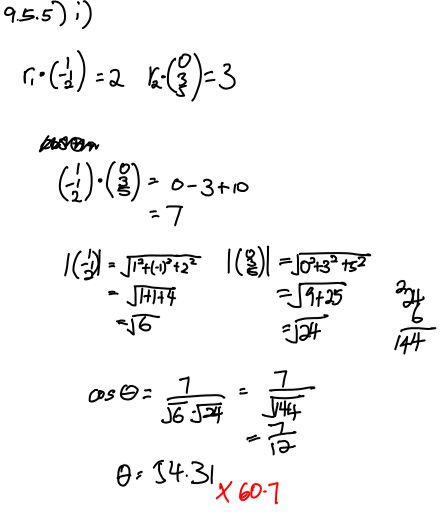 9.5.5) i)
r₁·(1 -1 2) = 2 r₂·(0 3 5) = 3
(1 -1 2)·(0 3 5) = 0 - 3 + 10
= 7
|(1 -1 2)| = √1²+(-1)²+2² |(0 3 5)| = √0²+3²+5²
= √1+1+4 = √9+25
= √6 = √24
²24
6
144
cos θ = 7/(√6·√24) = 7/√144
= 7/12
θ = 54.31 × 60.7